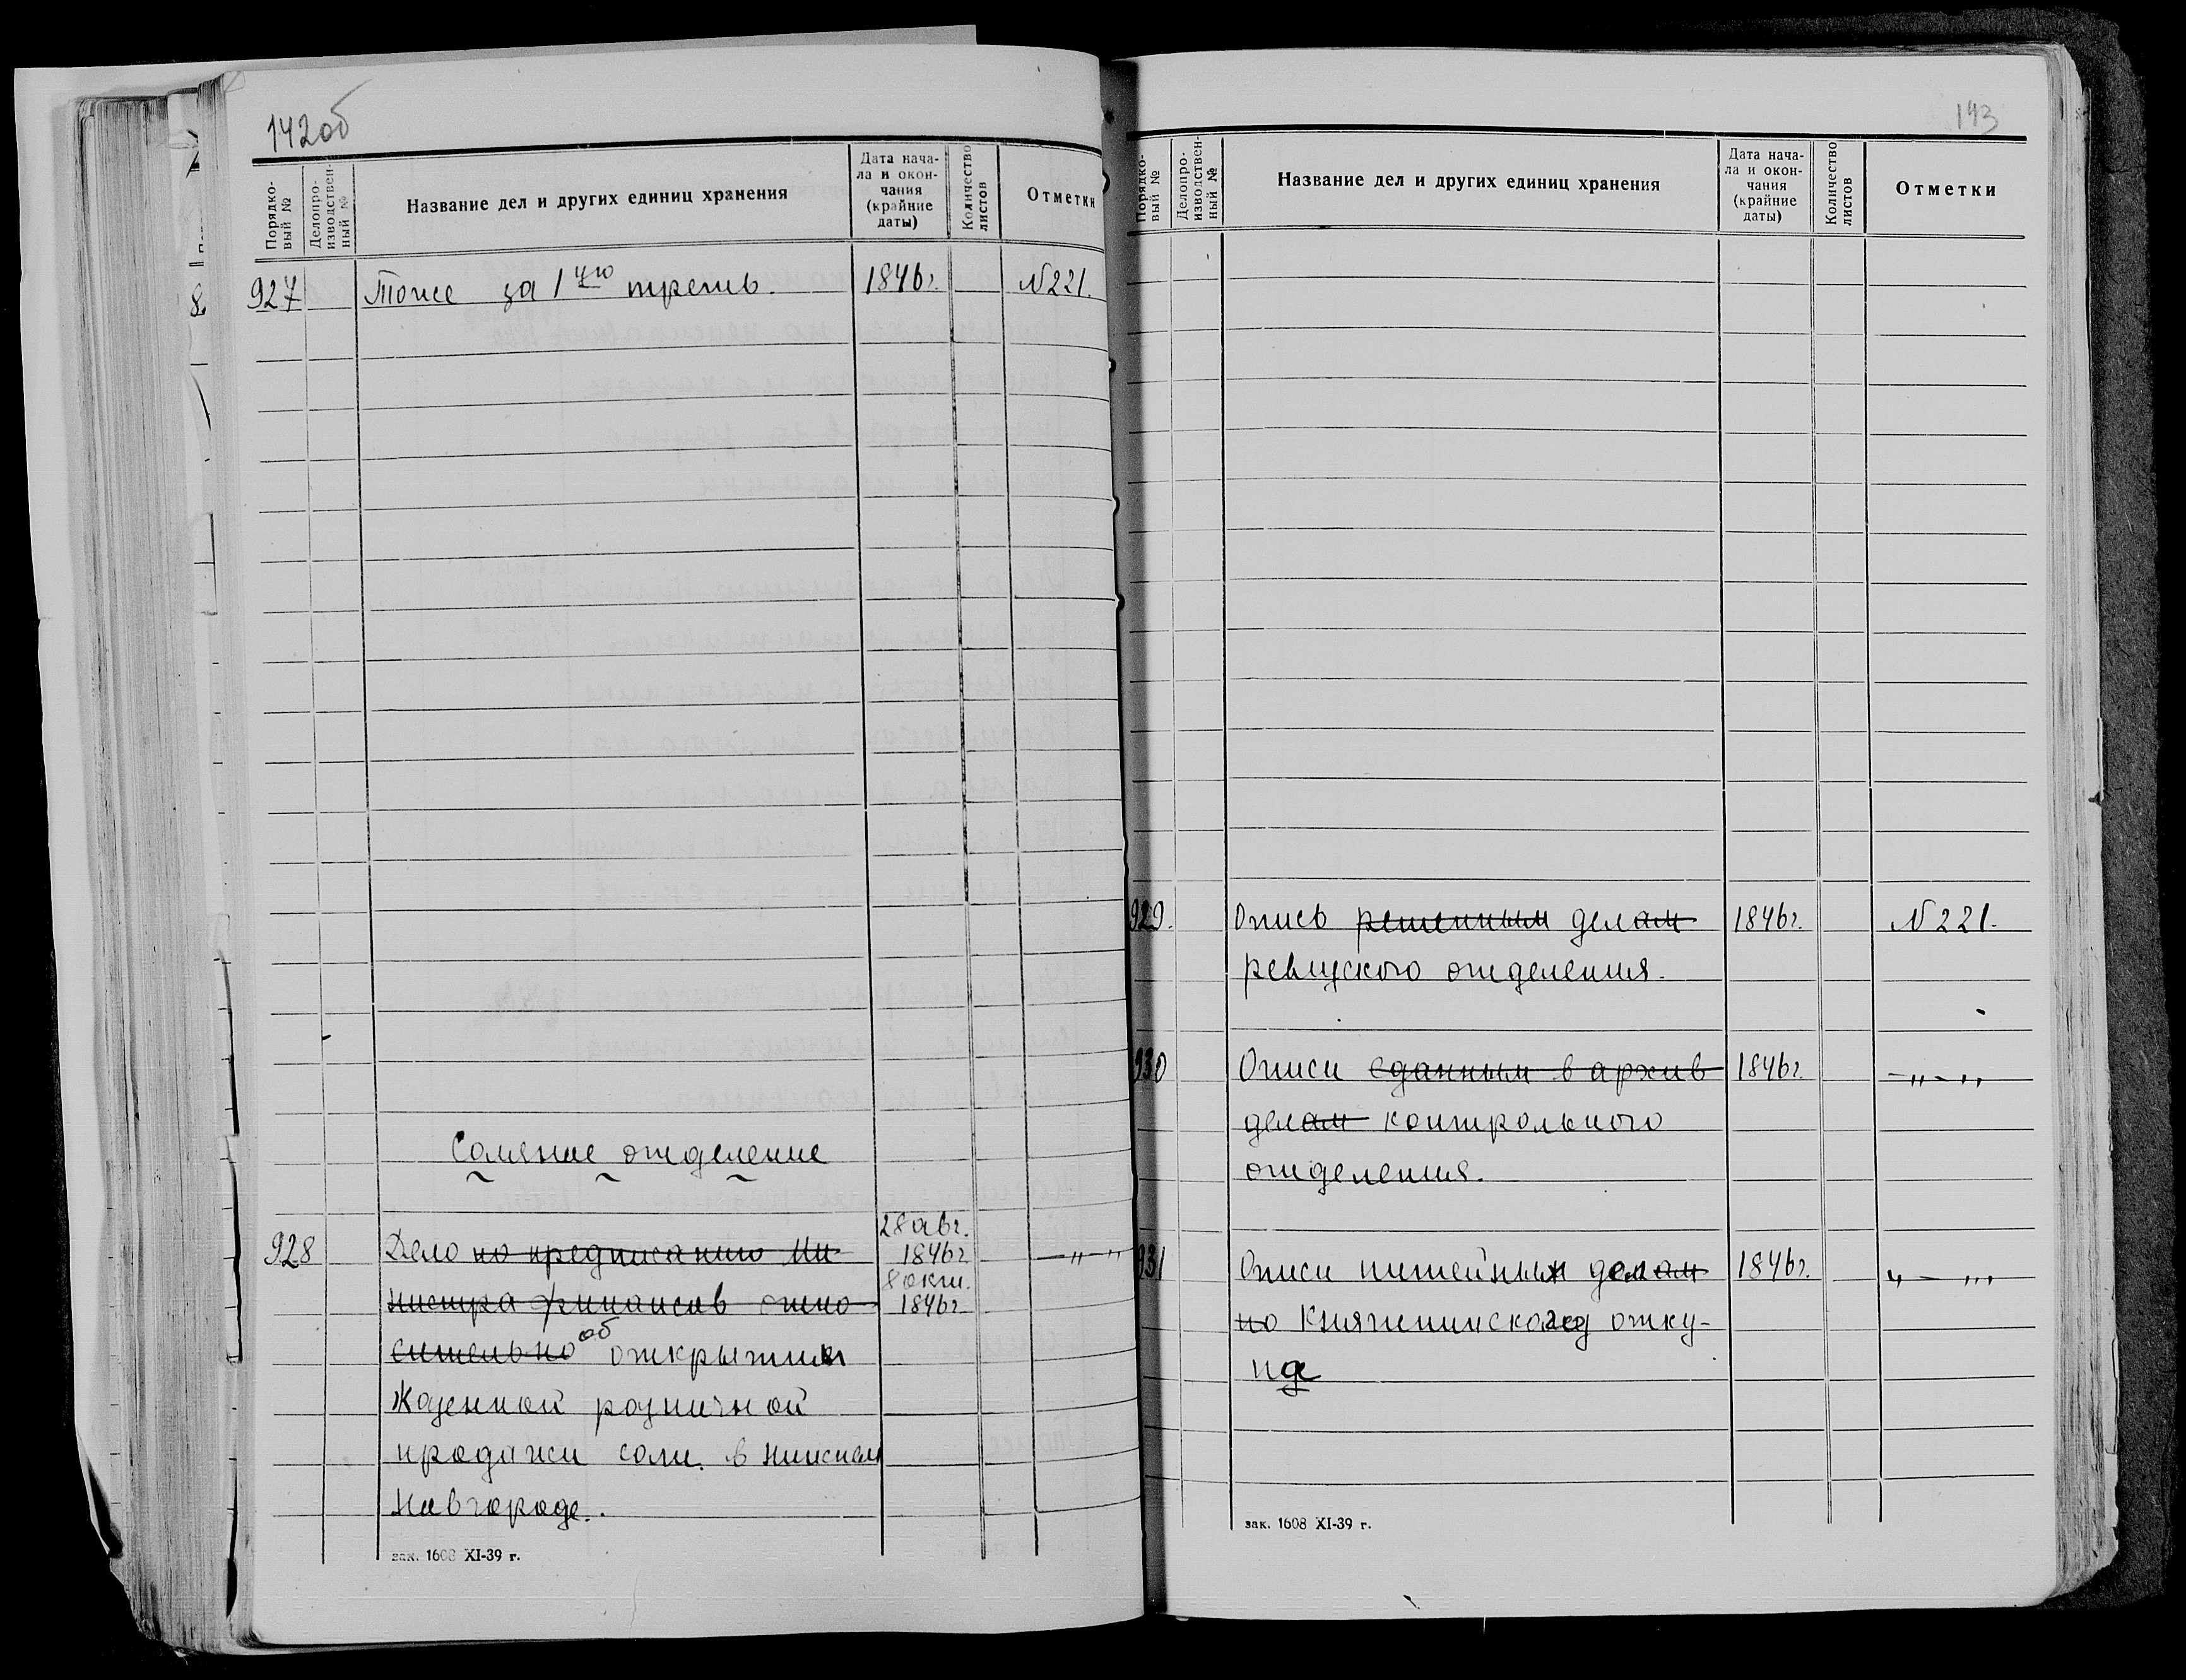 142об
Порядко-
вый №
Делопро-
изводствен-
ный №
Название дел и других единиц хранения
Дата нача-
ла и окон-
чания
(крайние
даты)
Количество
листов
Отметки
927 Тоже за 1ую треть. 1846г. N221.
Соляное отделение
928 Дело по предписанию Ми- 28 авг. 1846г -„-"
нистра финансов отно- 8 окт. 1846г
сительно об открытии
Казенной розничной
продажи соли в Нижнем
Новгороде.
зак. 1608 XI-39 г.
143
Порядко-
вый №
Делопро-
изводствен-
ный №
Название дел и других единиц хранения
Дата нача-
ла и окон-
чания
(крайние
даты)
Количество
листов
Отметки
929. Опись решенным делам 1846г. N221.
ревизского отделения.
930 Описи сданным в архив 1846г. -„-„
делам контрольного
отделения.
931 Описи питейных делам 1846г. „-„
по Княгининскому отку-
пу
зак. 1608 XI-39 г.